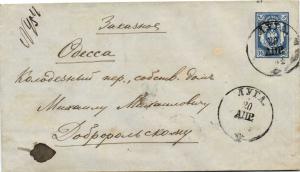 № 454
Заказное
Одесса
Колодезный пер., собств. домъ
Михаилу Михайловичу
Добровольскому
ЛУГА.
АПР.
ЛУГА.
20
АПР.